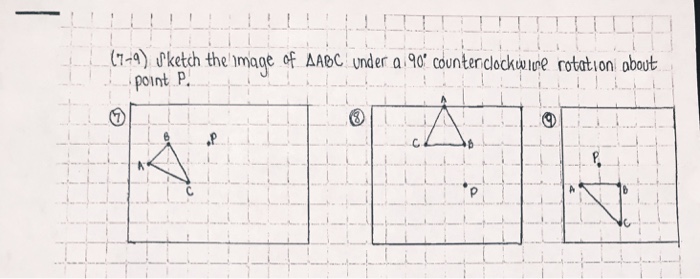 (7-9) Sketch the image of ΔABC under a 90° counterclockwise rotation about
point P.
7 8 9
A
B P
A
C
C B
P
P
A B
C